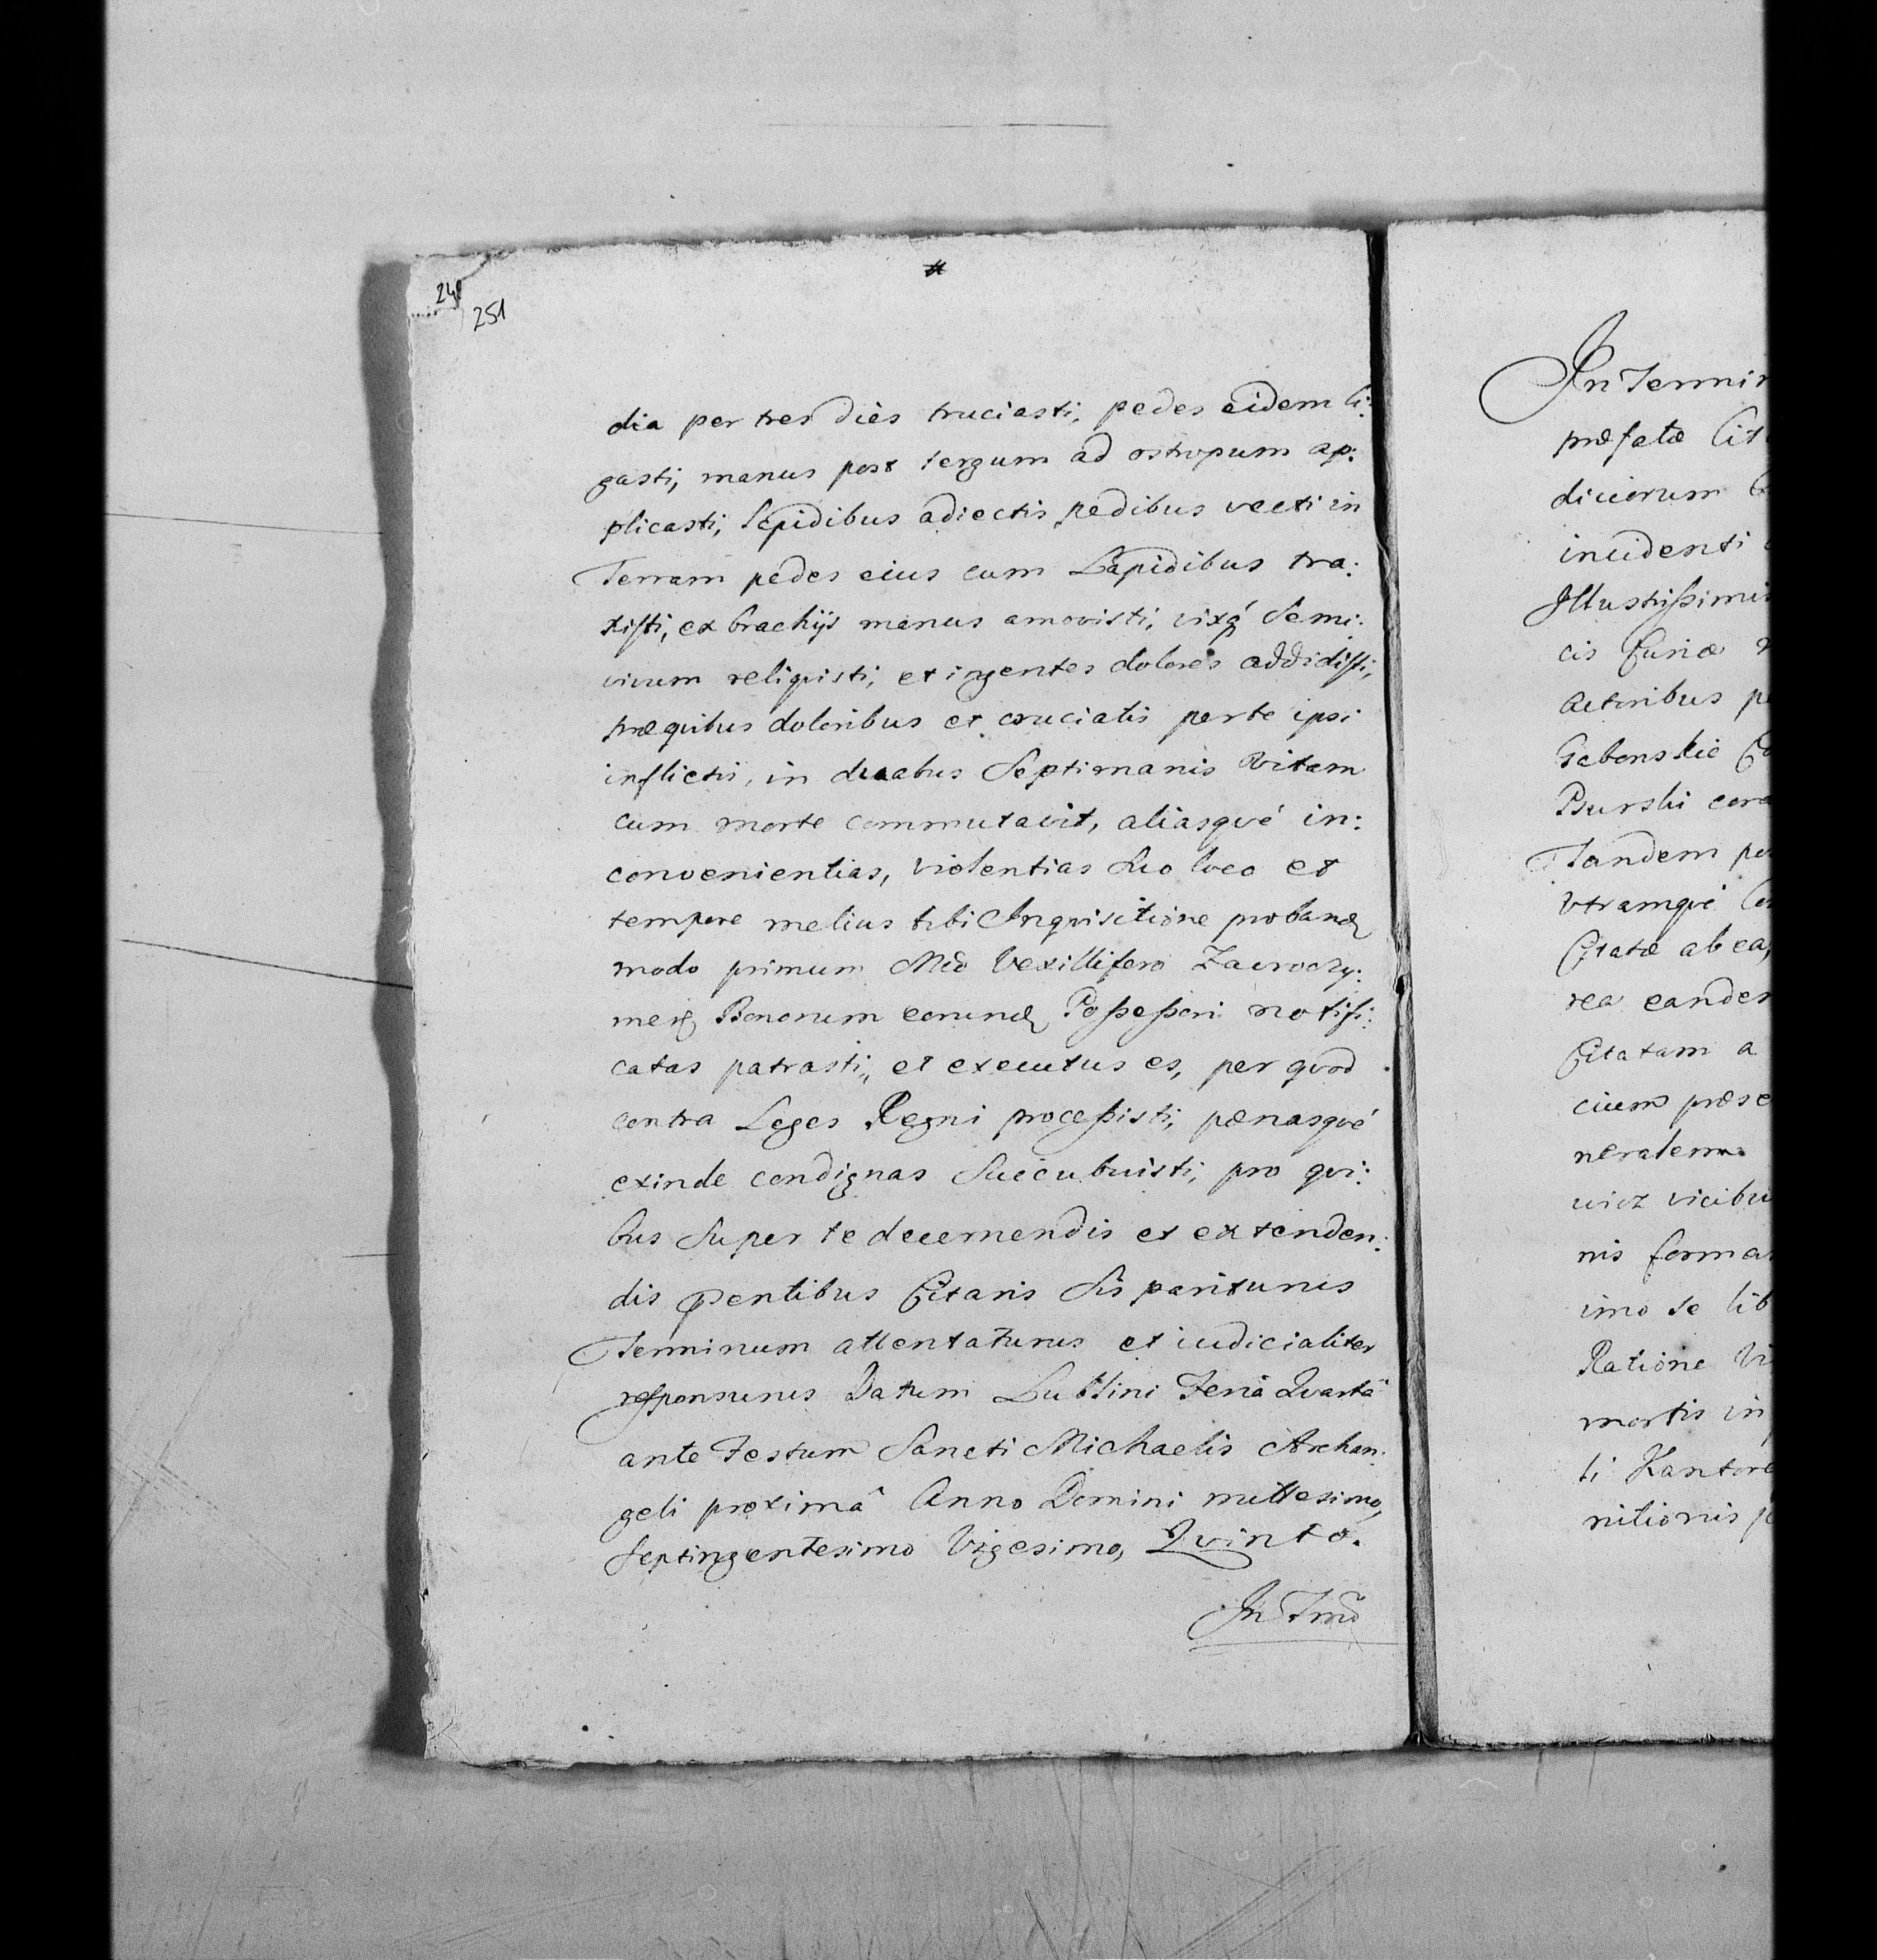 248
251
dia per tres dies truciasti, pedes eidem li:
gasti, manus post tergum ad ostropum ap:
plicasti, Lapidibus adiectis pedibus vecti in
Terram pedes eius cum Lapidibus tra:
xisti, ex brachijs manus amovisti, vixq́ Semi:
vivum reliquisti, et ingentes dolores addidisti,
præ quibus doloribus et cruciatis per te ipsi
inflictis, in duabus Septimanis Vitam
cum morte commutavit, aliasqvé in:
convenientias, violentias Suo loco et
tempore melius tibi Inquisitione proband
modo primum Mco Vexillifero Zacroczy:
mens Bonorum eorund Possessori notifi:
catas patrasti, et executus es, per qvod
contra Leges Regni processisti, pænasqvé
exinde condignas Succubuisti, pro qvi:
bus Super te decernendis et extenden:
dis pentibus Citaris Sis pariturus
Terminum attentaturus et iudicialiter
responsurus Datum Lublini Feria Qvartâ
ante Festum Sancti Michaelis Archan:
geli proximâ Anno Domini millesimo,
Septingentesimo Vigesimo, Qvinto.
In Tmo
In Termin
præfatæ Cit
diciorum
incidenti
Illustrissimis
cis Curiæ
Actoribus pe
Gebenskie
Psurski cora
Tandem per
Vtramqvé
Citatæ ab ea,
rea eandem
Citatam a
cium præse
neralem
uicz vicibu
nis forma
imo se lib
Ratione Vi
mortis in
ti Kantore
nitionis p